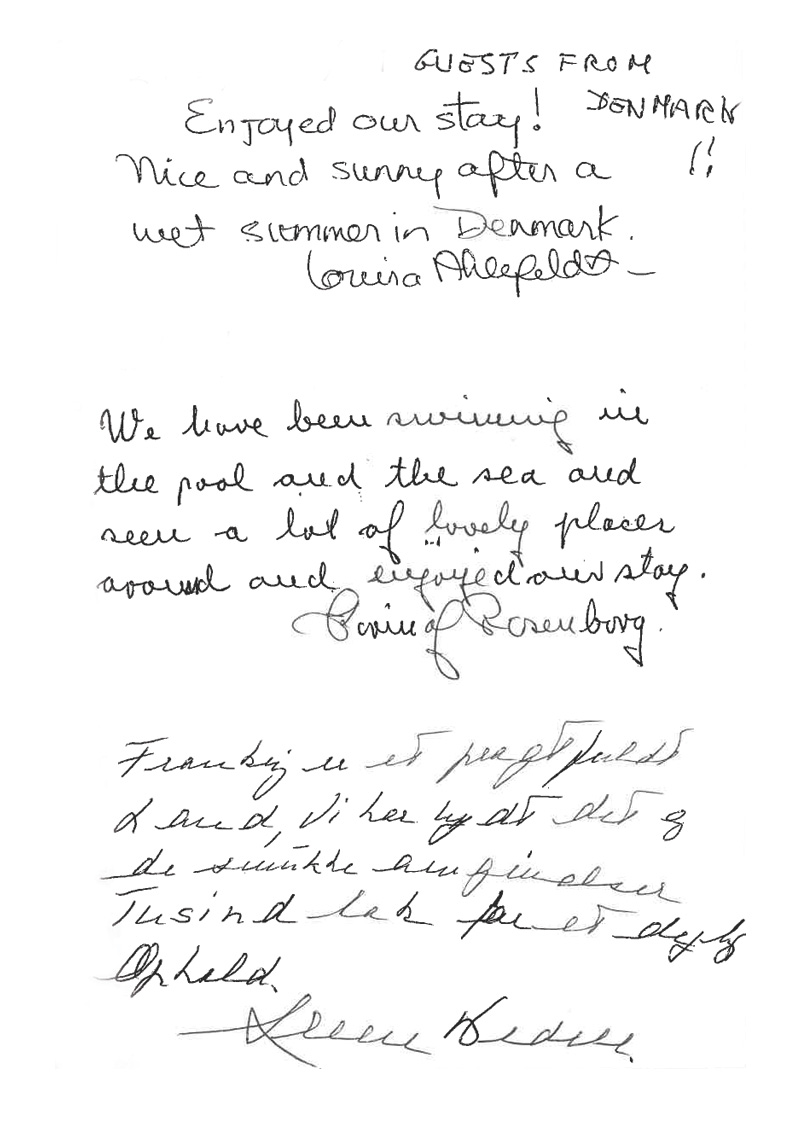 GUESTS FROM
DENMARK
!!
Enjoyed our stay!
Nice and sunny after a
wet summer in Denmark.
Louisa Ahlefeldt –
We have been swimming in
the pool and the sea and
seen a lot of lovely places
around and enjoyed our stay.
of Rosenborg.
Frankig er et pragtfuldt
Land, Vi har nydt det og
de smukke omgivelser
Tusind tak for et dejlig
Ophold.